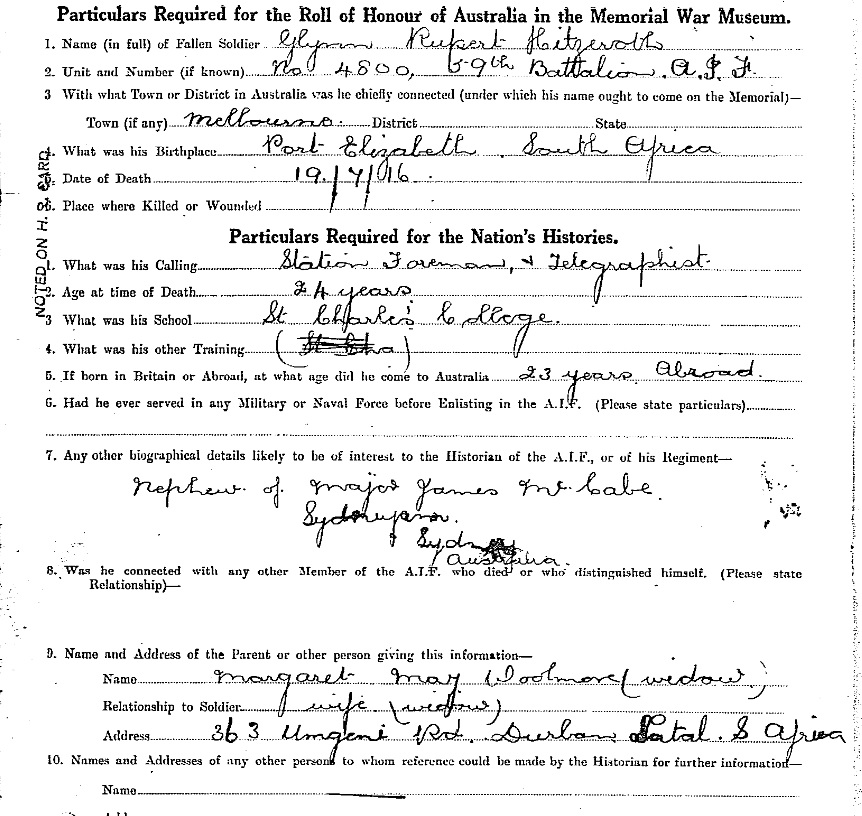 Particulars Required for the Roll of Honour of Australia in the Memorial War Museum.
1. Name (in full) of Fallen Soldier Glynn Rupert Hitzeroth
2. Unit and Number (if known) No 4800, 59th Battalion. A.I.F.
3 With what Town or District in Australia was he chiefly connected (under which his name ought to come on the Memorial)—
Town (if any) Melbourne. District State
4. What was his Birthplace Port Elizabeth. South Africa
5. Date of Death 19/7/16.
6. Place where Killed or Wounded
NOTED ON H. CARD
Particulars Required for the Nation's Histories.
1. What was his Calling Station Foreman, & Telegraphist.
2. Age at time of Death 24 years
3 What was his School St Charles's College.
4. What was his other Training
5. If born in Britain or Abroad, at what age did he come to Australia 23 years Abroad.
6. Had he ever served in any Military or Naval Force before Enlisting in the A.I.F. (Please state particulars)
7. Any other biographical details likely to be of interest to the Historian of the A.I.F., or of his Regiment—
Nephew of Major James McCabe.
Australia.
8. Was he connected with any other Member of the A.I.F. who died or who distinguished himself. (Please state
Relationship)—
9. Name and Address of the Parent or other person giving this information—
Name Margaret May Woolmore (widow)
Relationship to Soldier wife (widow)
Address 363 Umgeni Rd. Durban Natal. S Africa
10. Names and Addresses of any other persons to whom reference could be made by the Historian for further information—
Name